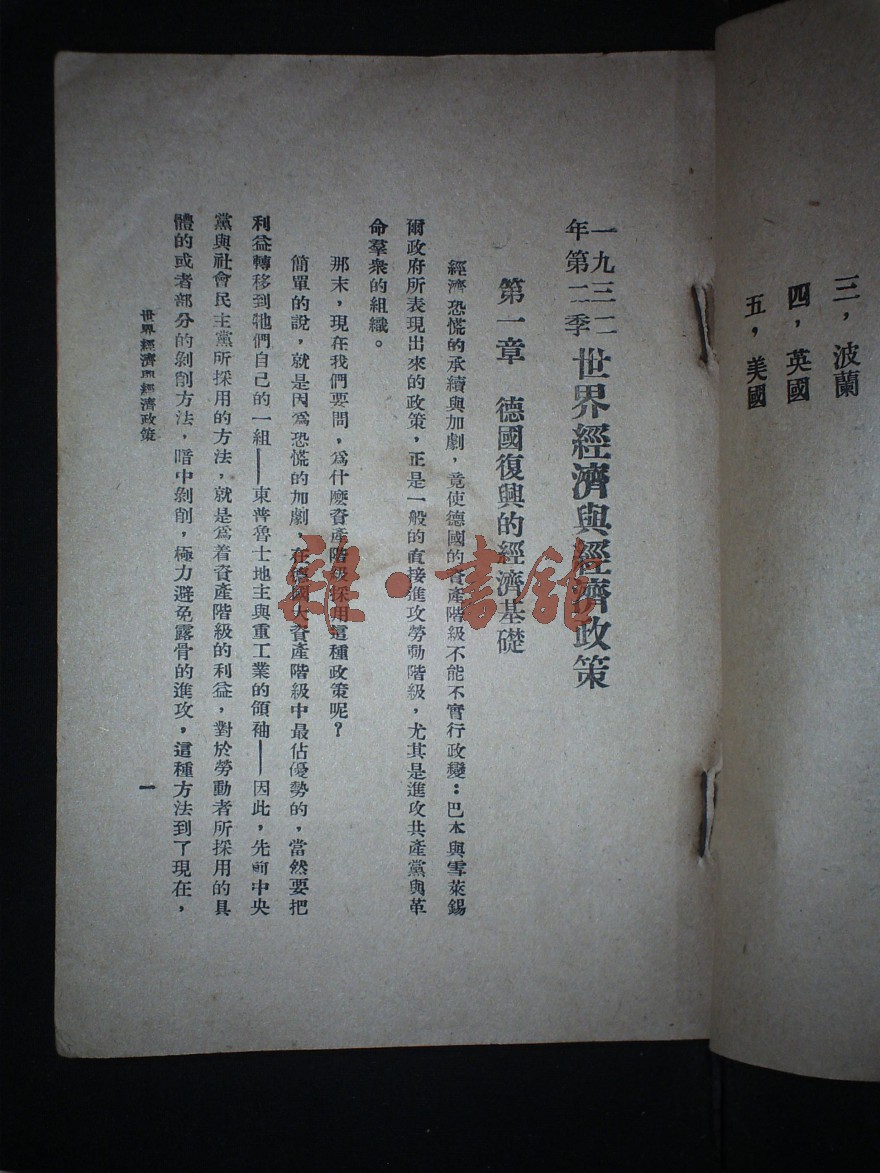 三，波蘭
四，英國
五，美國
一九三二年第二季 世界經濟與經濟政策
第一章 德國復興的經濟基礎
經濟恐慌的承續與加劇，竟使德國的資產階級不能不實行政變：巴本與雪萊錫
爾政府所表現出來的政策，正是一般的直接進攻勞動階級，尤其是進攻共產黨與革
命羣衆的組織。
那末，現在我們要問，爲什麽資產階級採用這種政策呢？
簡單的說，就是因爲恐慌的加劇，在德國大資產階級中最佔優勢的，當然要把
利益轉移到牠們自己的一組——東普魯士地主與重工業的領袖——因此，先前中央
黨與社會民主黨所採用的方法，就是爲着資產階級的利益，對於勞動者所採用的具
體的或者部分的剝削方法，暗中剝削，極力避免露骨的進攻，這種方法到了現在，
世界經濟與經濟政策
一
雜·書館